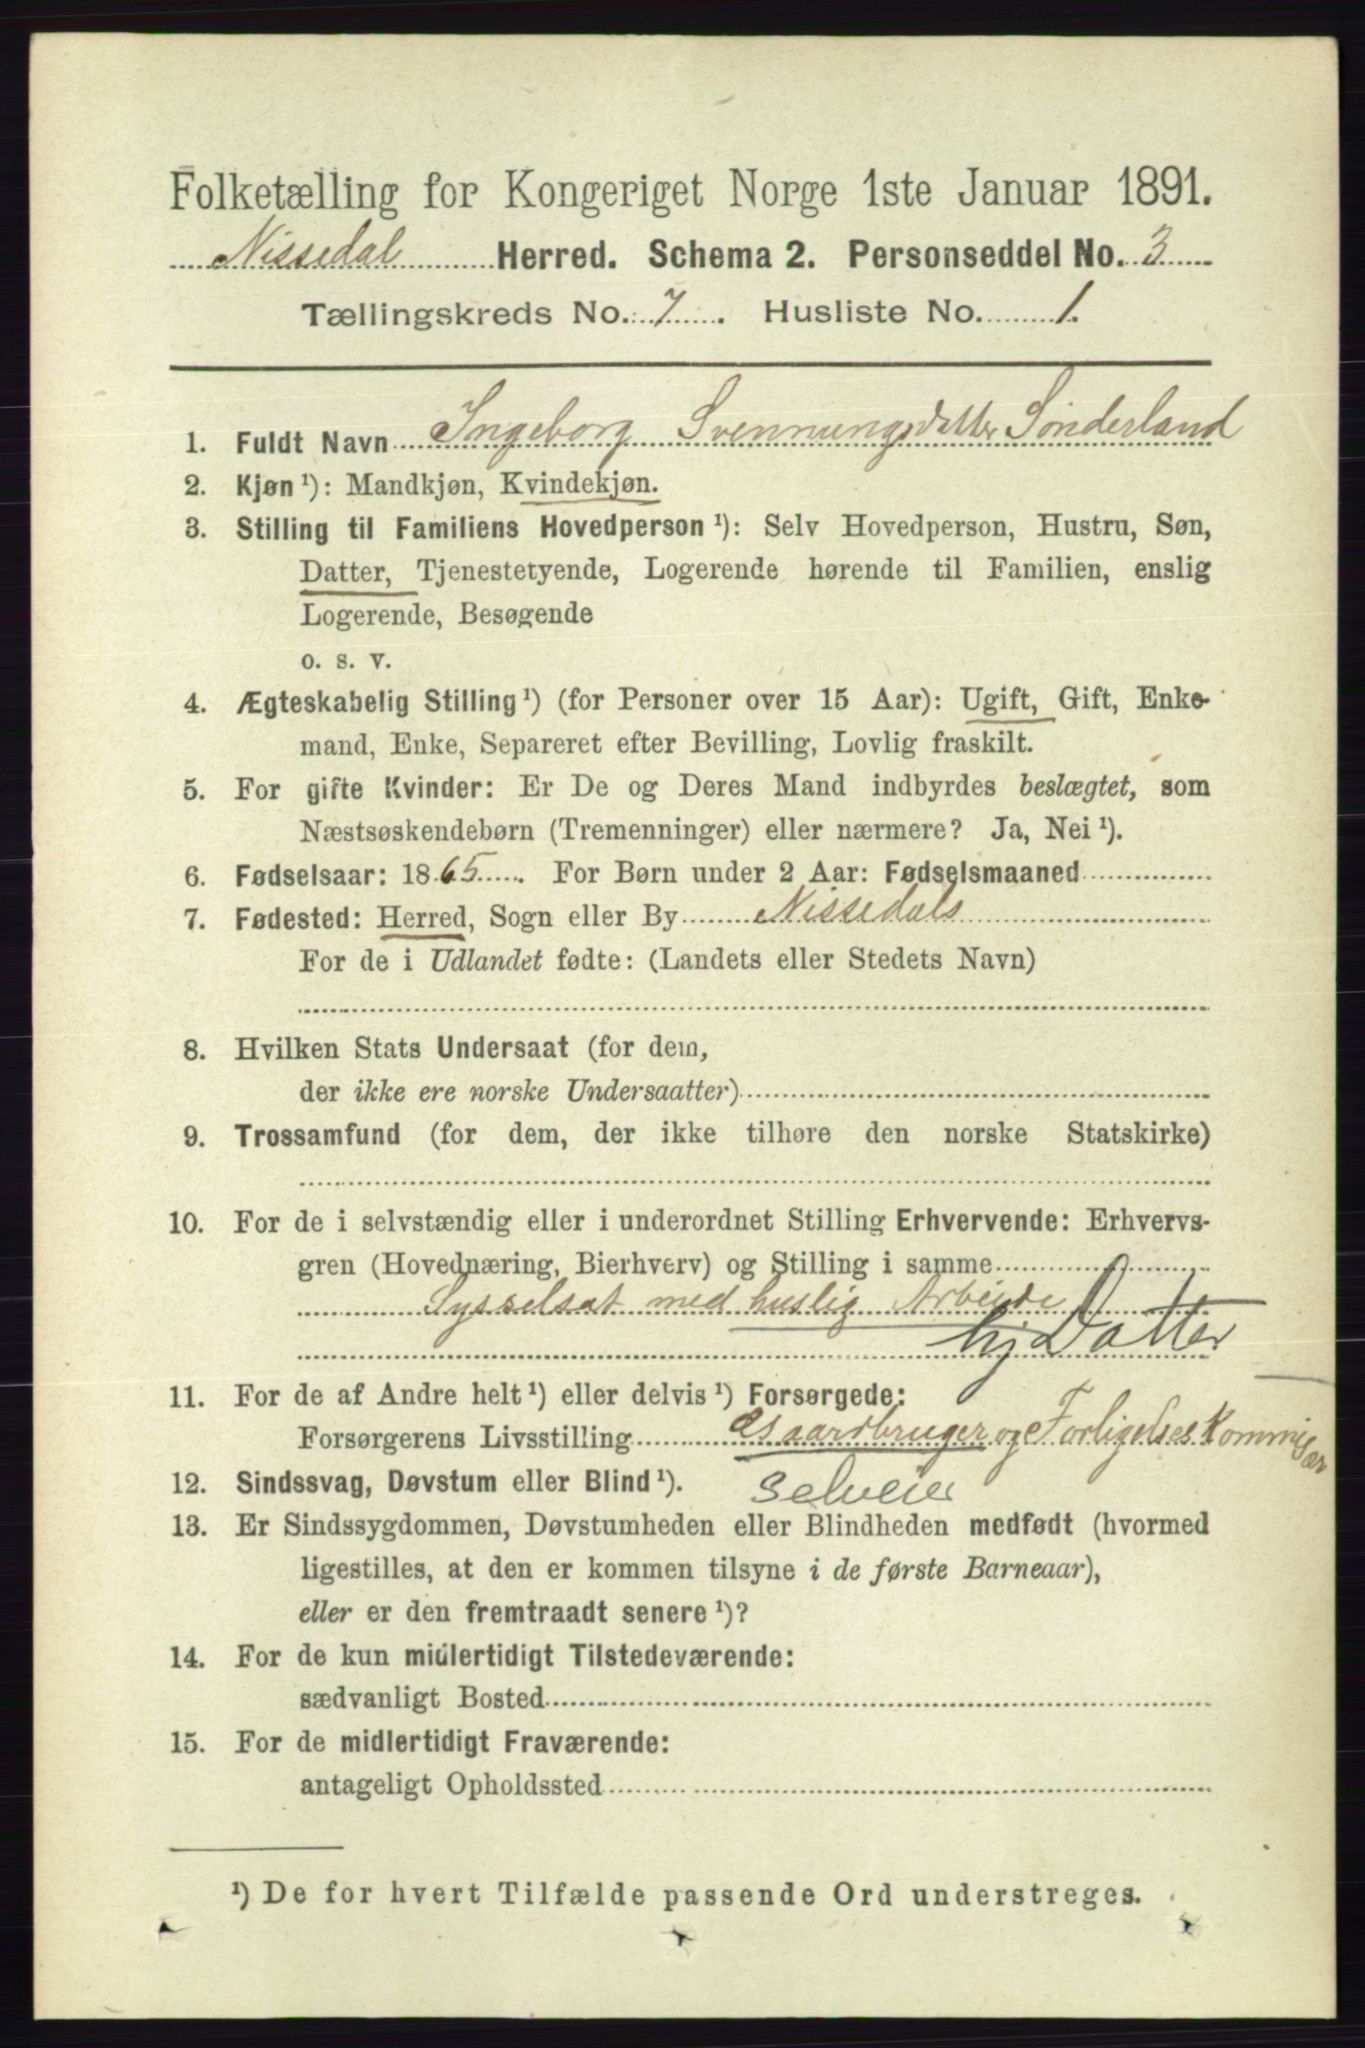 Folketælling for Kongeriget Norge 1ste Januar 1891.
Nissedal Herred. Schema 2. Personseddel No. 3
Tællingskreds No. 7. Husliste No. 1.
1. Fuldt Navn Ingeborg Svenningsdatter Sönderland
2. Kjøn ¹): Mandkjøn, Kvindekjøn.
3. Stilling til Familiens Hovedperson ¹): Selv Hovedperson, Hustru, Søn,
Datter, Tjenestetyende, Logerende hørende til Familien, enslig
Logerende, Besøgende
o. s. v.
4. Ægteskabelig Stilling ¹) (for Personer over 15 Aar): Ugift, Gift, Enke-
mand, Enke, Separeret efter Bevilling, Lovlig fraskilt.
5. For gifte Kvinder: Er De og Deres Mand indbyrdes beslægtet, som
Næstsøskendebørn (Tremenninger) eller nærmere? Ja, Nei ¹).
6. Fødselsaar: 1865. For Børn under 2 Aar: Fødselsmaaned
7. Fødested: Herred, Sogn eller By Nissedals
For de i Udlandet fødte: (Landets eller Stedets Navn)
8. Hvilken Stats Undersaat (for dem,
der ikke ere norske Undersaatter)
9. Trossamfund (for dem, der ikke tilhøre den norske Statskirke)
10. For de i selvstændig eller i underordnet Stilling Erhvervende: Erhvervs-
gren (Hovednæring, Bierhverv) og Stilling i samme
Sysselsat med huslig Arbeide
hj Datter
11. For de af Andre helt ¹) eller delvis ¹) Forsørgede:
Forsørgerens Livsstilling Gaardbruger og Forligelses Kommisær
12. Sindssvag, Døvstum eller Blind ¹). Selveier
13. Er Sindssygdommen, Døvstumheden eller Blindheden medfødt (hvormed
ligestilles, at den er kommen tilsyne i de første Barneaar),
eller er den fremtraadt senere ¹)?
14. For de kun midlertidigt Tilstedeværende:
sædvanligt Bosted
15. For de midlertidigt Fraværende:
antageligt Opholdssted
¹) De for hvert Tilfælde passende Ord understreges.